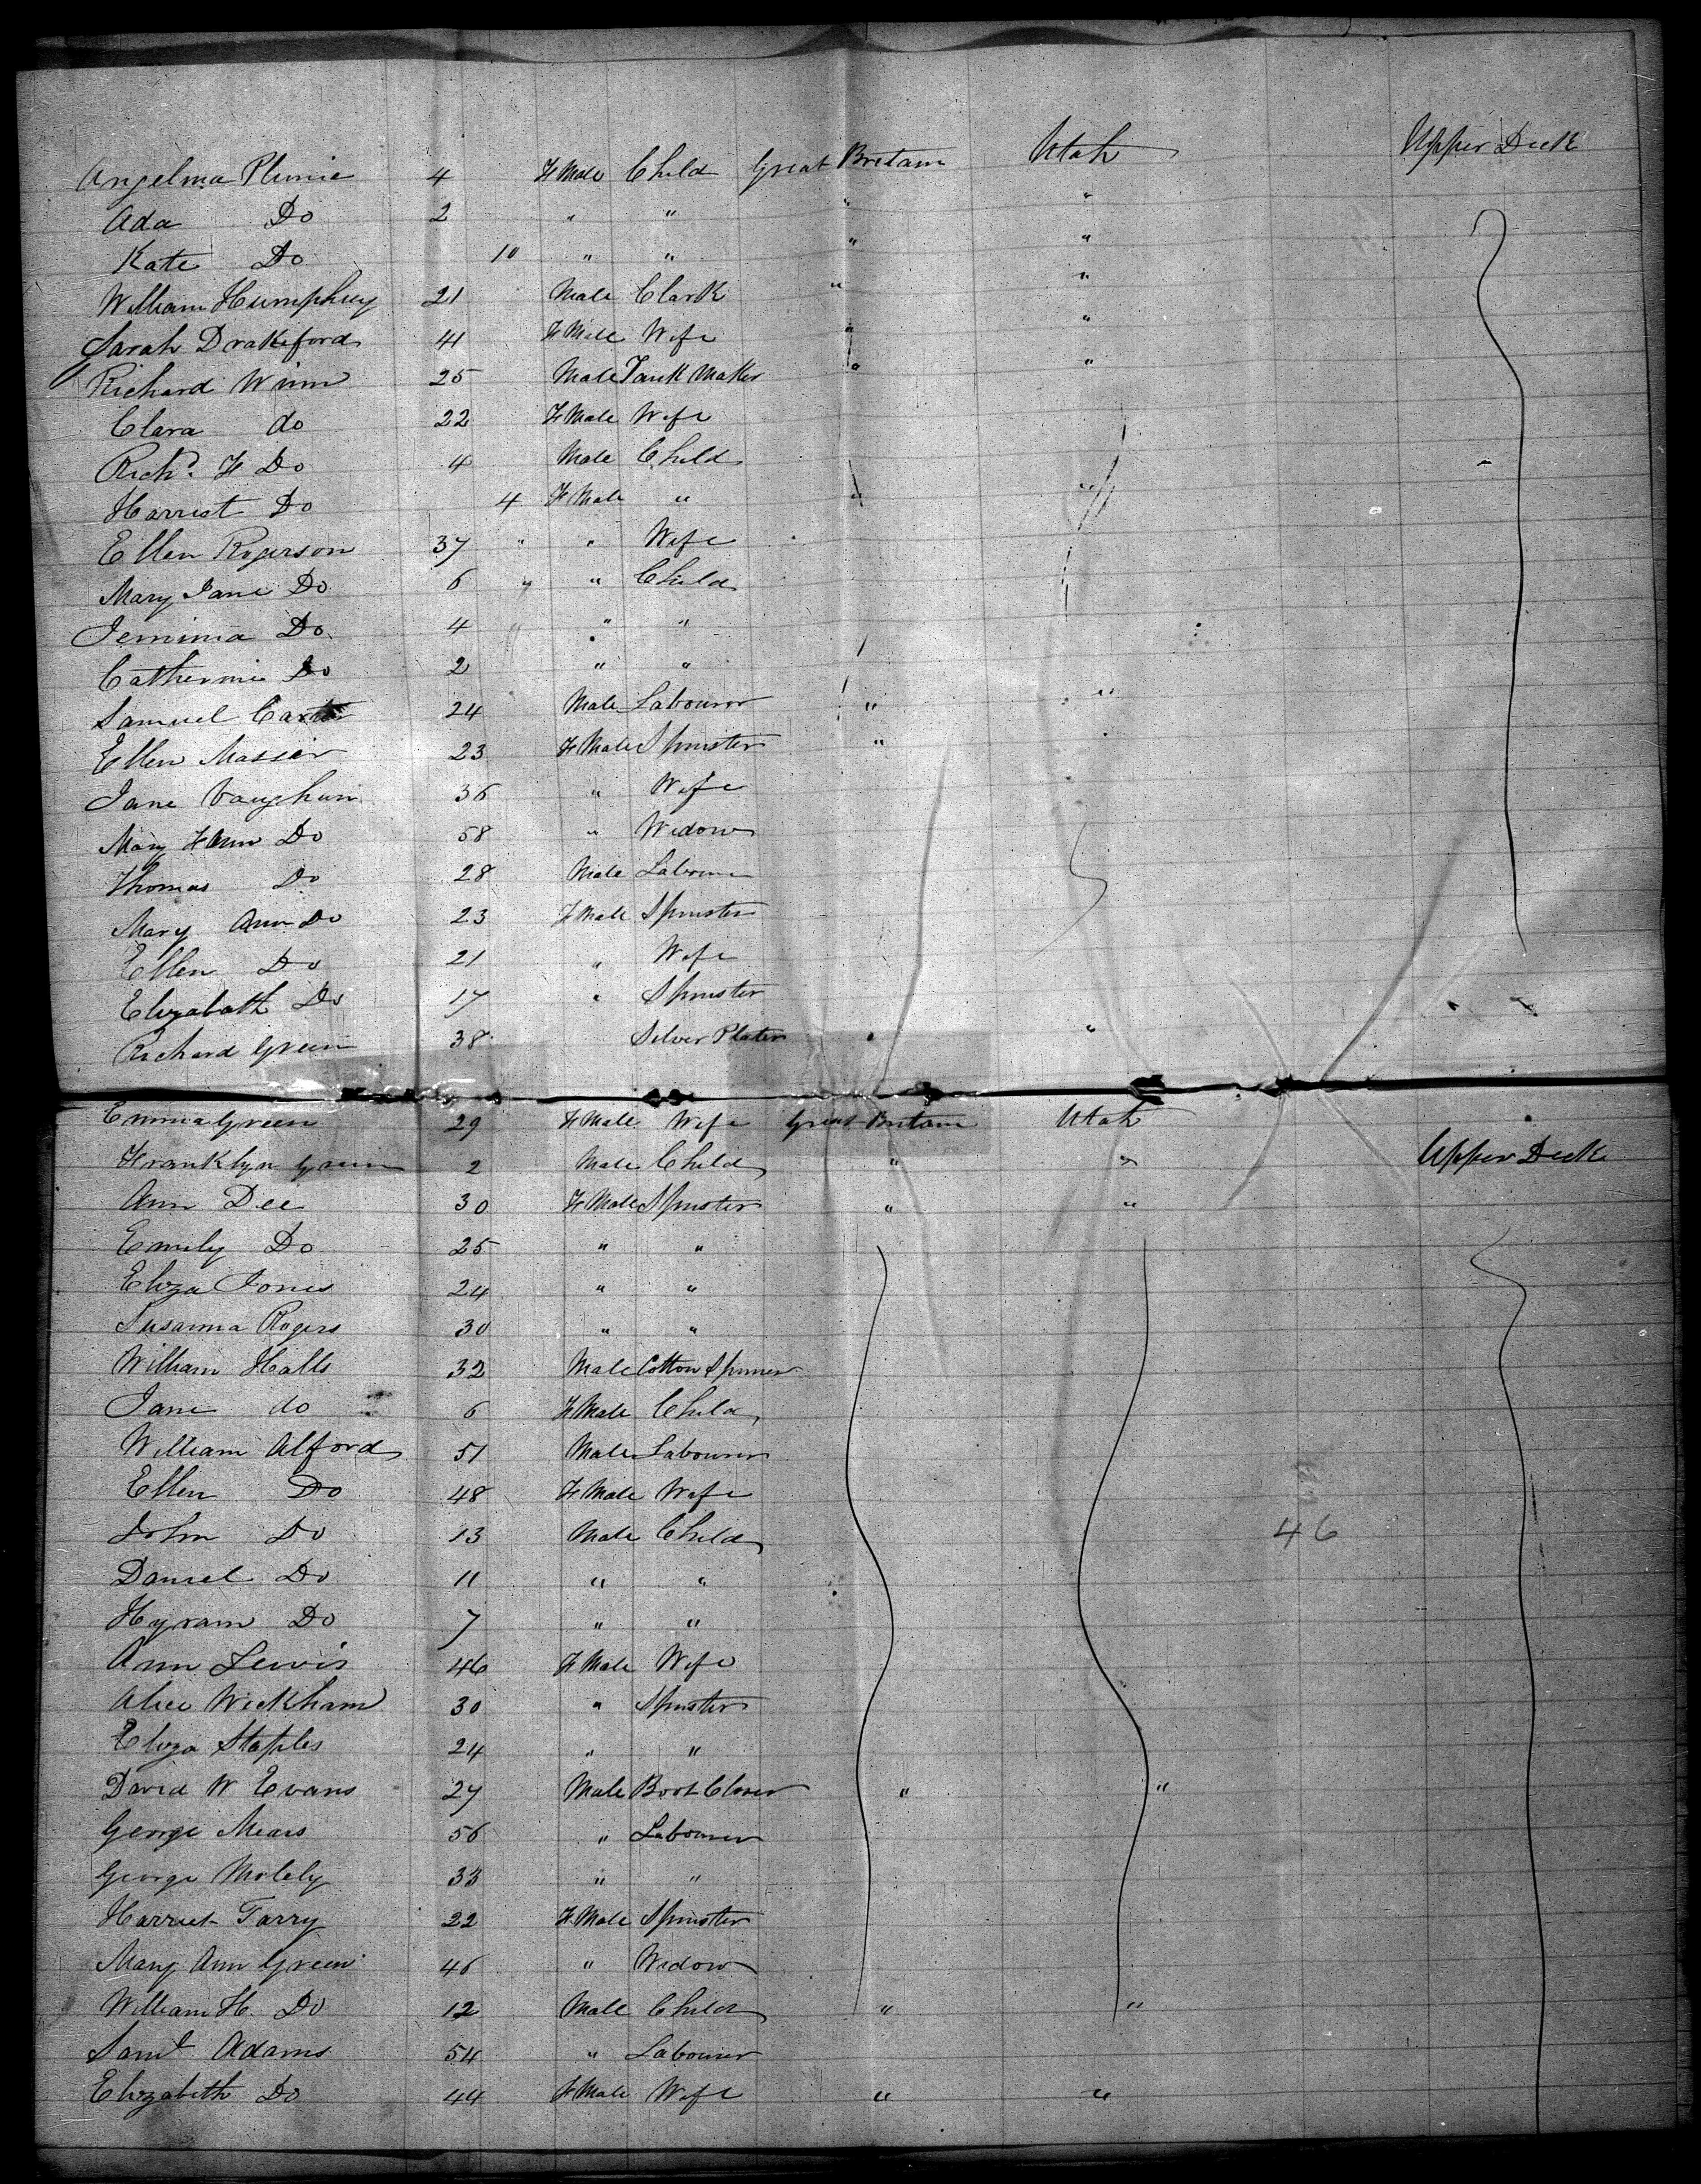 Angelina Plunie 4 FMale Child Great Britain Utah Upper Deck
Ada Do 2 " " " "
Kate Do 10 " " " "
William Humphrey 21 Male Clark " "
Sarah Drakeford 41 FMale Wife " "
Richard Winn 25 Male Tank Maker " "
Clara do 22 FMale Wife
Richd. F Do 4 Male Child
Harriet Do 4 FMale " " "
Ellen Rogerson 37 " " Wife
Mary Jane Do 6 " " Child
Jemima Do 4 " " "
Catherine Do 2 " "
Samuel Carter 24 Male Labourer " "
Ellen Masser 23 FMale Spinster "
Jane Vaughan 36 " Wife
Mary Ann Do 58 " Widow
Thomas Do 28 Male Labourer
Mary Ann Do 23 FMale Spinster
Ellen Do 21 " Wife
Elizabath Do 17 " Spinster
Richard Green 38 Silver Plater " "
Emma Green 29 FMale Wife Great Britain Utah
Franklyn Green 2 Male Child " " Upper Deck
Ann Dee 30 FMale Spinster " "
Emily Do 25 " "
Eliza Jones 24 " "
Susanna Rogers 30 " "
William Halls 32 Male Cotton Spinner
Jane do 6 FMale Child
William Alford 51 Male Labourer
Ellen Do 48 FMale Wife
John Do 13 Male Child 46
Daniel Do 11 " "
Hyram Do 7 " "
Ann Lewis 46 FMale Wife
Alice Wickham 30 " Spinster
Eliza Staples 24 " "
David W Evans 27 Male Boot Closer " "
George Mears 56 " Labourer
George Molely 33 " "
Harriet Tarry 22 FMale Spinster
Mary Ann Green 46 " Widow
William H. Do 12 Male Child " "
Saml Adams 54 " Labourer
Elizabeth Do 44 FMale Wife " "